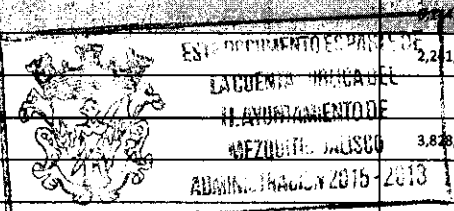 ESTE DOCUMENTO ES PARTE DE
LA CUENTA PUBLICA DEL
H. AYUNTAMIENTO DE
MEZQUITIC JALISCO
ADMINISTRACION 2015 - 2018